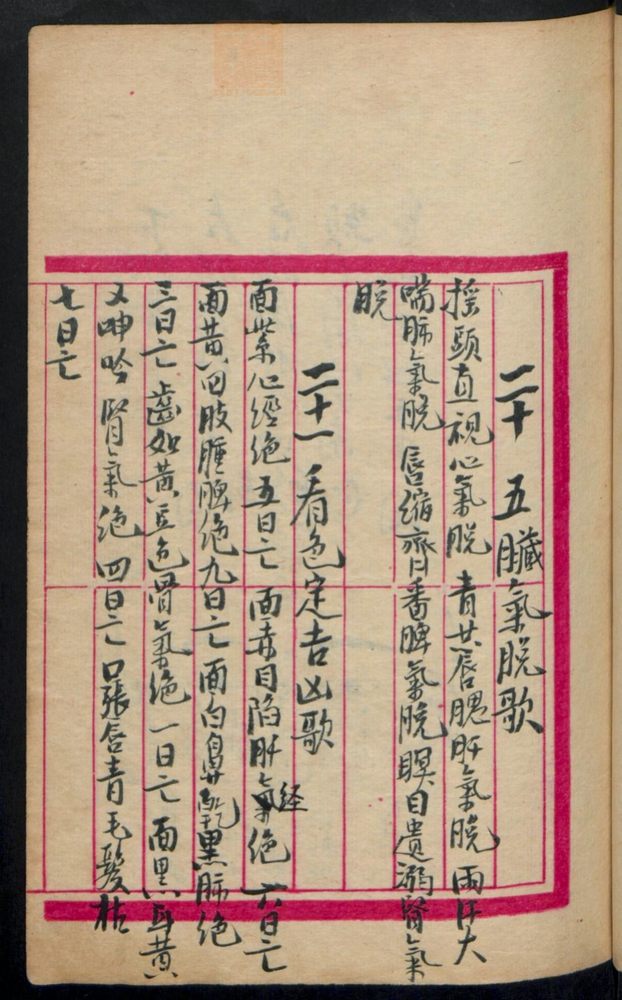 二十 五臟氣脫歌
搖頭直視心氣脫 青 唇 肝氣脫 雨汗大
喘肺氣脫 唇缩齊番脾氣脫 瞑目遺溺腎氣
脫
二十一 看色定吉凶歌
面紫心經绝五日亡 面赤目陷肝氣経绝六日亡
面黄四肢腫脾绝九日亡 面白鼻 黑肺绝
三日亡 齒如黄豆色骨氣绝一日亡 面黑耳黄
又呻吟腎氣绝四日亡 口張唇青毛髮枯
七日亡